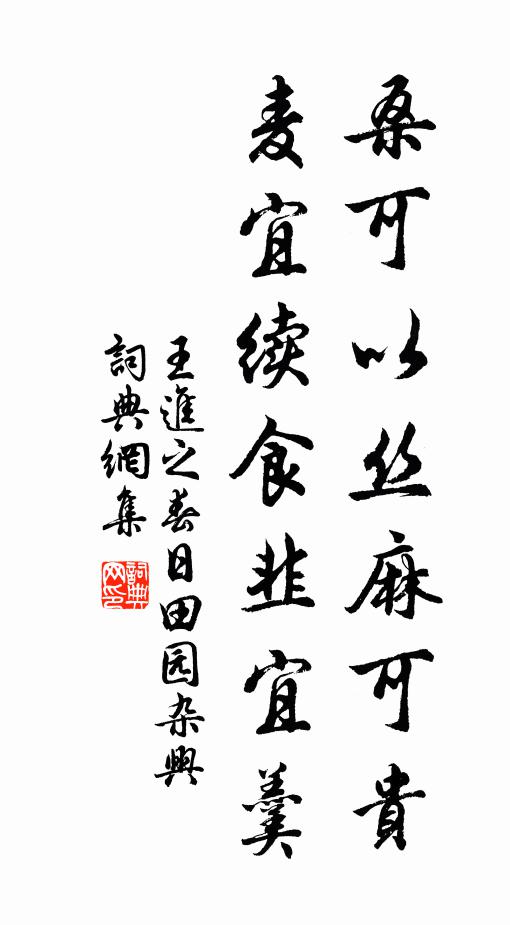 桑可以丝麻可貴
麦宜续食韭宜羹
王進之春日田园杂興
詞典網集
詞典网印